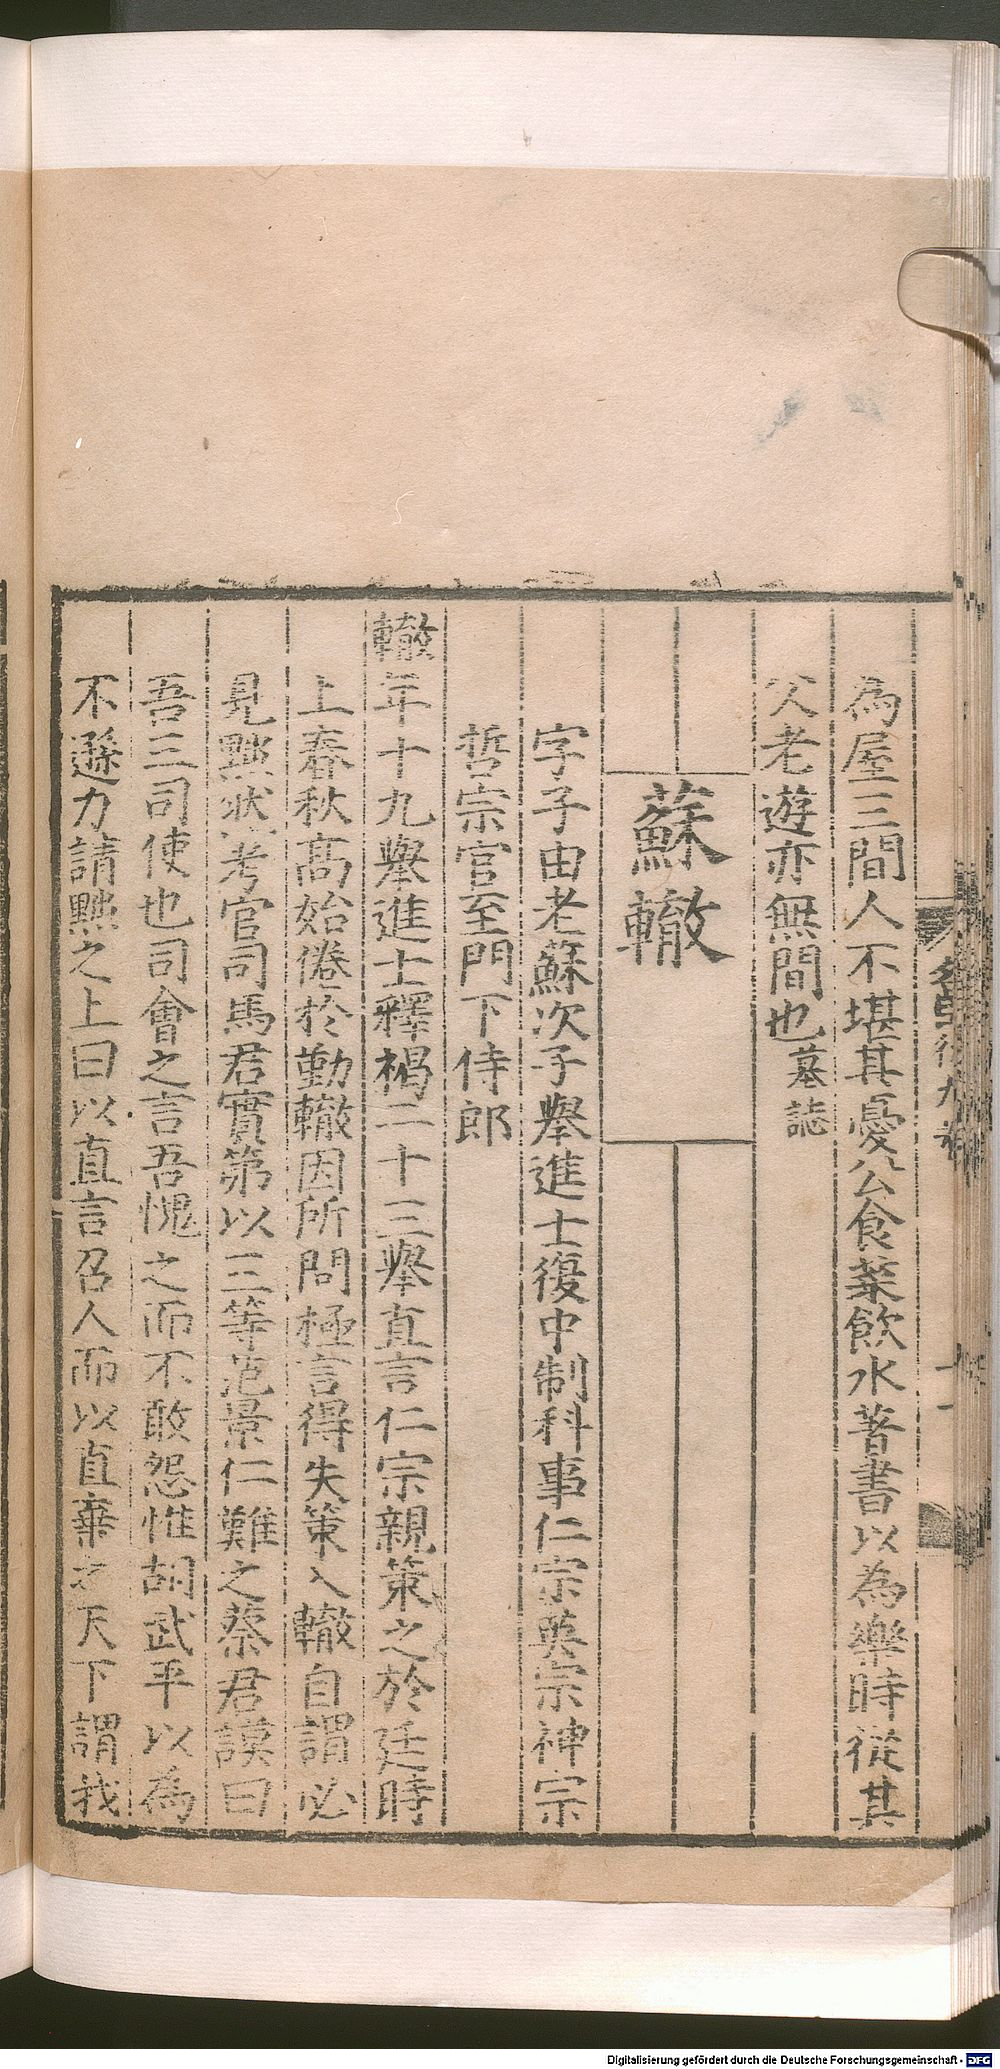 為屋三間人不堪其憂公食菜飲水著書以為樂時從其
父老遊亦無間也墓誌
蘇轍
字子由老蘇次子舉進士復中制科事仁宗英宗神宗
哲宗官至門下侍郎
轍年十九舉進士釋褐二十三舉直言仁宗親策之於廷時
上春秋高始倦於勤轍因所問極言得失策入轍自謂必
見黜然考官司馬君實第以三等范景仁難之蔡君謨曰
吾三司使也司會之言吾愧之而不敢怨惟胡武平以為
不遜力請黜之上曰以直言召人而以直棄之天下謂我
Digitalisierung gefördert durch die Deutsche Forschungsgemeinschaft - DFG